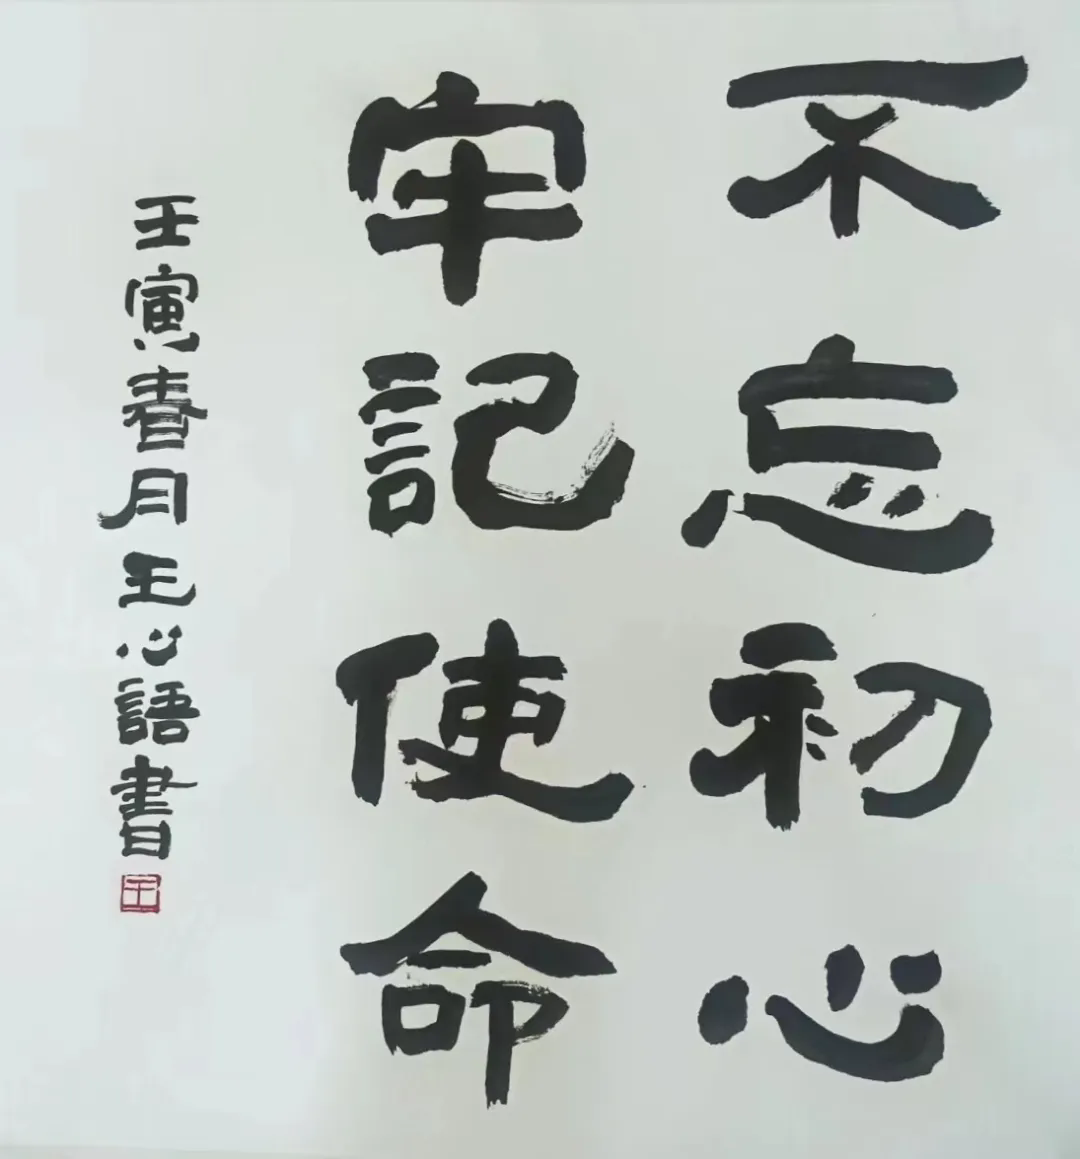 不忘初心
牢記使命
壬寅春月王心語書
王